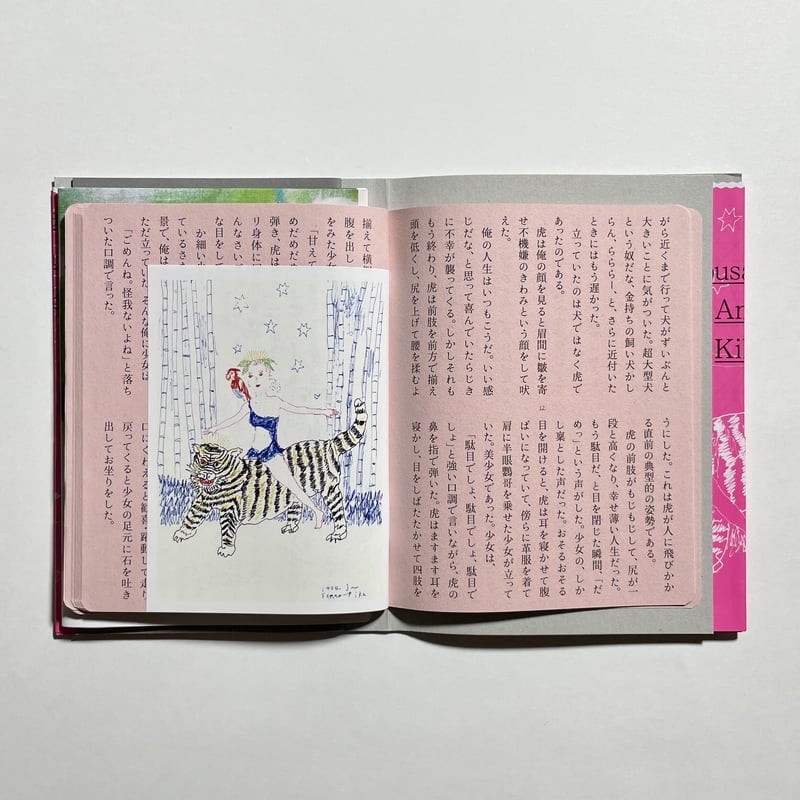 がら近くまで行って犬がずいぶんと
大きいことに気がついた。超大型犬
という奴だな、金持ちの飼い犬かし
らん、らららー、と、さらに近付いた
ときにはもう遅かった。
立っていたのは犬ではなく虎で
あったのである。
虎は俺の顔を見ると眉間に皺を寄
せ不機嫌のきわみという顔をして吠
えた。
俺の人生はいつもこうだ。いい感
じだな、と思って喜んでいたらじき
に不幸が襲ってくる。しかしそれも
もう終わり、虎は前肢を前方で揃え
頭を低くし、尻を上げて腰を揉むよ
うにした。これは虎が人に飛びかか
る直前の典型的の姿勢である。
虎の前肢がもじもじして、尻が一
段と高くなり、幸せ薄い人生だった。
もう駄目だ、と目を閉じた瞬間、「だ
めっ」という声がした。少女の、しか
し稟とした声だった。おそるおそる
目を開けると、虎は耳を寝かせて腹
ばいになっていて、傍らに革服を着て
肩に半眼鸚哥を乗せた少女が立って
いた。美少女であった。少女は、
「駄目でしょ、駄目でしょ、駄目で
しょ」と強い口調で言いながら、虎の
鼻を指で弾いた。虎はますます耳を
寝かし、目をしばたたかせて四肢を
12
揃えて横
腹を出し
をみた少女
「甘えて
めだめだ
弾き、虎は
リ身体に
んなさい
な目をして
か細い
ているさ
景で、俺は
ただ立っていた。そんな俺に少女は
「ごめんね。怪我ないよね」と落ち
ついた口調で言った。
口にくわえると歓喜、踊動して走り
戻ってくると少女の足元に石を吐き
出してお坐りをした。
usa
Ar
Ki